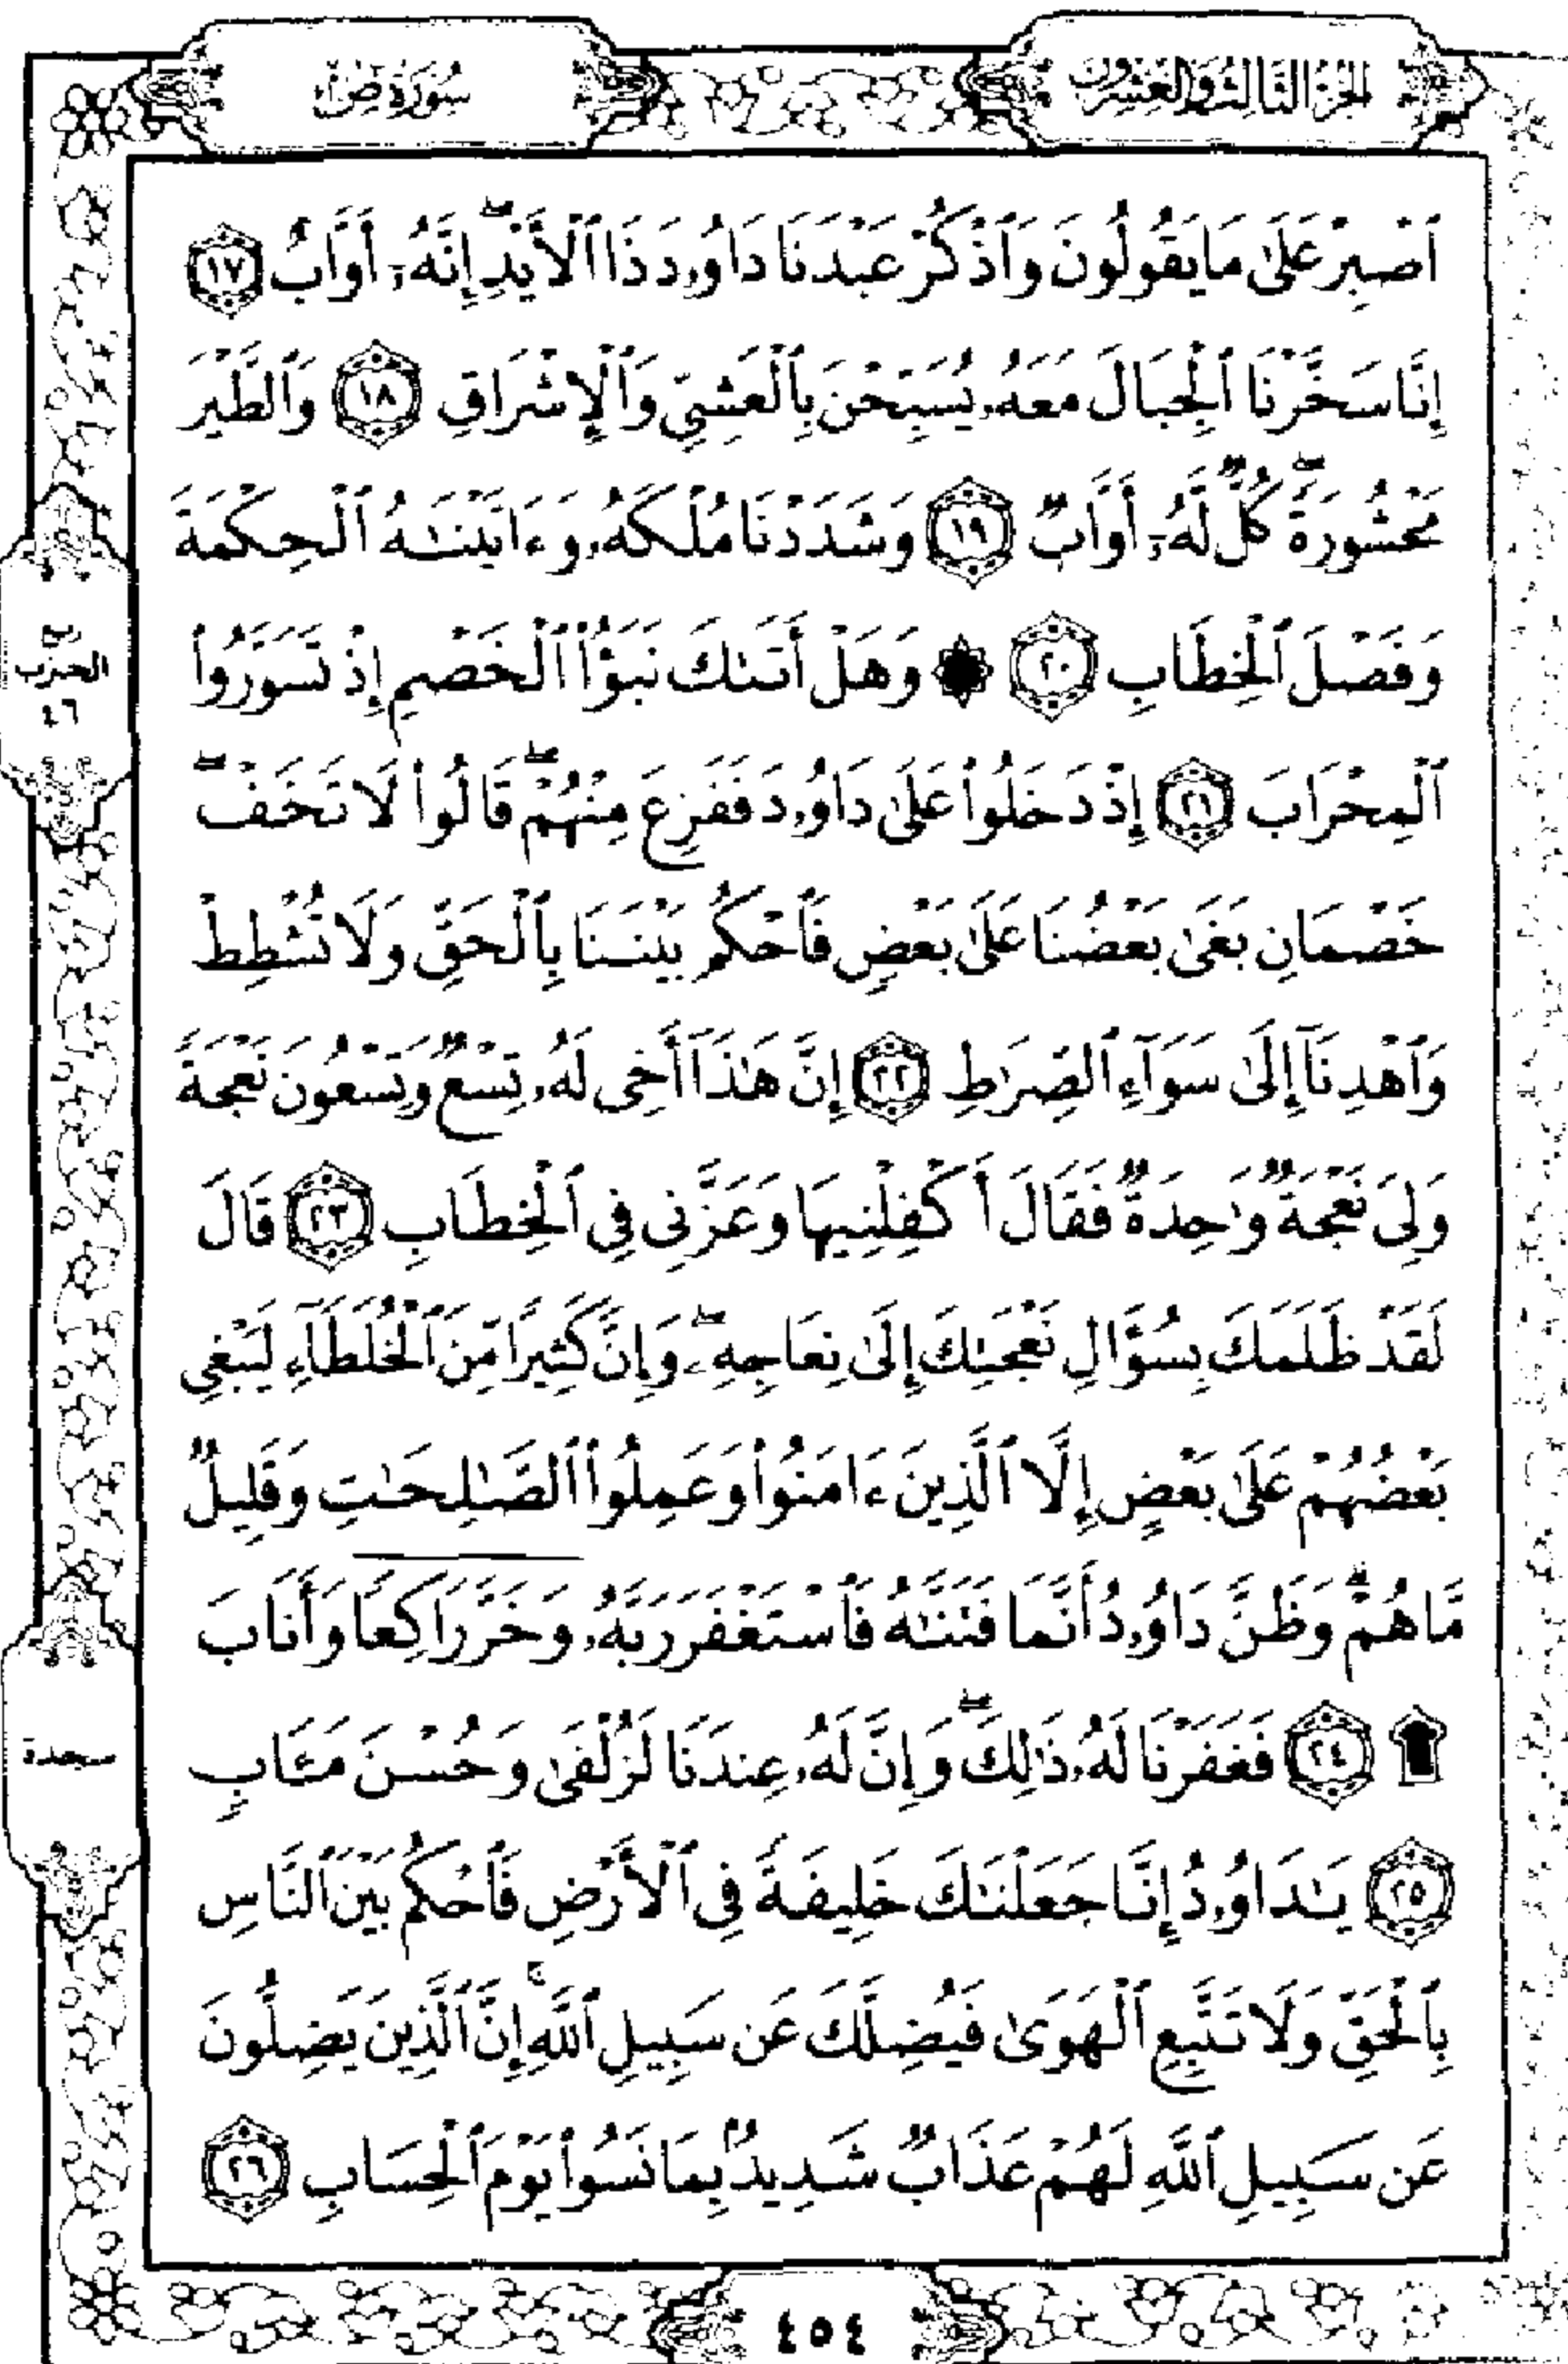 الجزء الثالث والعشرون
سورة ص
ٱصْبِرْ عَلَىٰ مَا يَقُولُونَ وَٱذْكُرْ عَبْدَنَا دَاوُۥدَ ذَا ٱلْأَيْدِ ۖ إِنَّهُۥٓ أَوَّابٌ ١٧
إِنَّا سَخَّرْنَا ٱلْجِبَالَ مَعَهُۥ يُسَبِّحْنَ بِٱلْعَشِىِّ وَٱلْإِشْرَاقِ ١٨ وَٱلطَّيْرَ
مَحْشُورَةً ۖ كُلٌّ لَّهُۥٓ أَوَّابٌ ١٩ وَشَدَدْنَا مُلْكَهُۥ وَءَاتَيْنَـٰهُ ٱلْحِكْمَةَ
وَفَصْلَ ٱلْخِطَابِ ٢٠ ۞ وَهَلْ أَتَىٰكَ نَبَؤُا۟ ٱلْخَصْمِ إِذْ تَسَوَّرُوا۟
ٱلْمِحْرَابَ ٢١ إِذْ دَخَلُوا۟ عَلَىٰ دَاوُۥدَ فَفَزِعَ مِنْهُمْ ۖ قَالُوا۟ لَا تَخَفْ ۖ
خَصْمَانِ بَغَىٰ بَعْضُنَا عَلَىٰ بَعْضٍ فَٱحْكُم بَيْنَنَا بِٱلْحَقِّ وَلَا تُشْطِطْ
وَٱهْدِنَآ إِلَىٰ سَوَآءِ ٱلصِّرَٰطِ ٢٢ إِنَّ هَـٰذَآ أَخِى لَهُۥ تِسْعٌ وَتِسْعُونَ نَعْجَةً
وَلِىَ نَعْجَةٌ وَٰحِدَةٌ فَقَالَ أَكْفِلْنِيهَا وَعَزَّنِى فِى ٱلْخِطَابِ ٢٣ قَالَ
لَقَدْ ظَلَمَكَ بِسُؤَالِ نَعْجَتِكَ إِلَىٰ نِعَاجِهِۦ ۖ وَإِنَّ كَثِيرًا مِّنَ ٱلْخُلَطَآءِ لَيَبْغِى
بَعْضُهُمْ عَلَىٰ بَعْضٍ إِلَّا ٱلَّذِينَ ءَامَنُوا۟ وَعَمِلُوا۟ ٱلصَّـٰلِحَـٰتِ وَقَلِيلٌ
مَّا هُمْ ۗ وَظَنَّ دَاوُۥدُ أَنَّمَا فَتَنَّـٰهُ فَٱسْتَغْفَرَ رَبَّهُۥ وَخَرَّ رَاكِعًا وَأَنَابَ
۩ ٢٤ فَغَفَرْنَا لَهُۥ ذَٰلِكَ ۖ وَإِنَّ لَهُۥ عِندَنَا لَزُلْفَىٰ وَحُسْنَ مَـَٔابٍ
٢٥ يَـٰدَاوُۥدُ إِنَّا جَعَلْنَـٰكَ خَلِيفَةً فِى ٱلْأَرْضِ فَٱحْكُم بَيْنَ ٱلنَّاسِ
بِٱلْحَقِّ وَلَا تَتَّبِعِ ٱلْهَوَىٰ فَيُضِلَّكَ عَن سَبِيلِ ٱللَّهِ ۚ إِنَّ ٱلَّذِينَ يَضِلُّونَ
عَن سَبِيلِ ٱللَّهِ لَهُمْ عَذَابٌ شَدِيدٌۢ بِمَا نَسُوا۟ يَوْمَ ٱلْحِسَابِ ٢٦
الحزب
٤٦
سجدة
٤٥٤